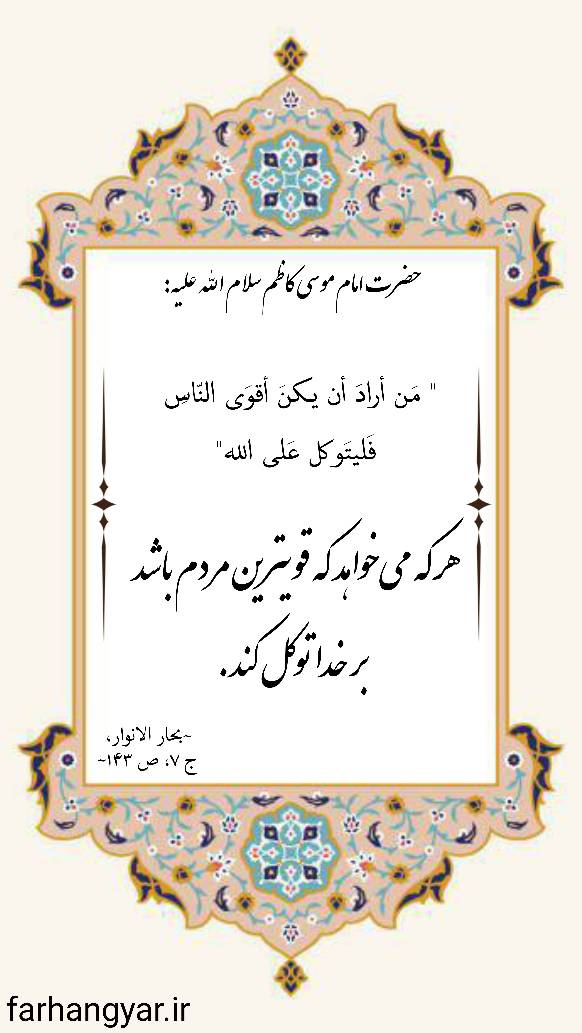 حضرت امام موسی کاظم سلام الله علیه:
" مَن أرادَ أن یکنَ أقوَی النّاسِ
فَلیتَوکل عَلی الله"
هرکه می خواهد که قویترین مردم باشد
بر خدا توکل کند.
~بحار الانوار،
ج ۷، ص ۱۴۳~
farhangyar.ir